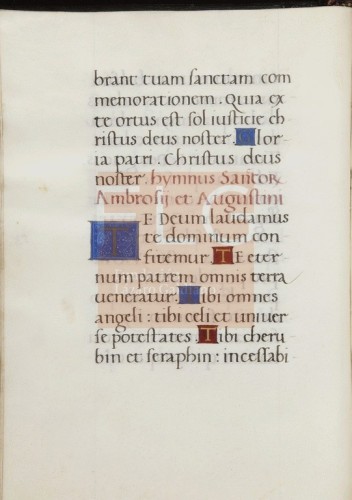 brant tuam sanctam com
memorationem. Quia ex
te ortus est sol iusticie ch
ristus deus noster. Glor
ia patri. Christus deus
noster. hymnus Sanctor
Ambrosij et Augustini
TE Deum laudamus
te dominum con
fitemur. TE eter
num patrem omnis terra
ueneratur. Tibi omnes
angeli: tibi celi et univer
se potestates. Tibi cheru
bin et seraphin: incessabi